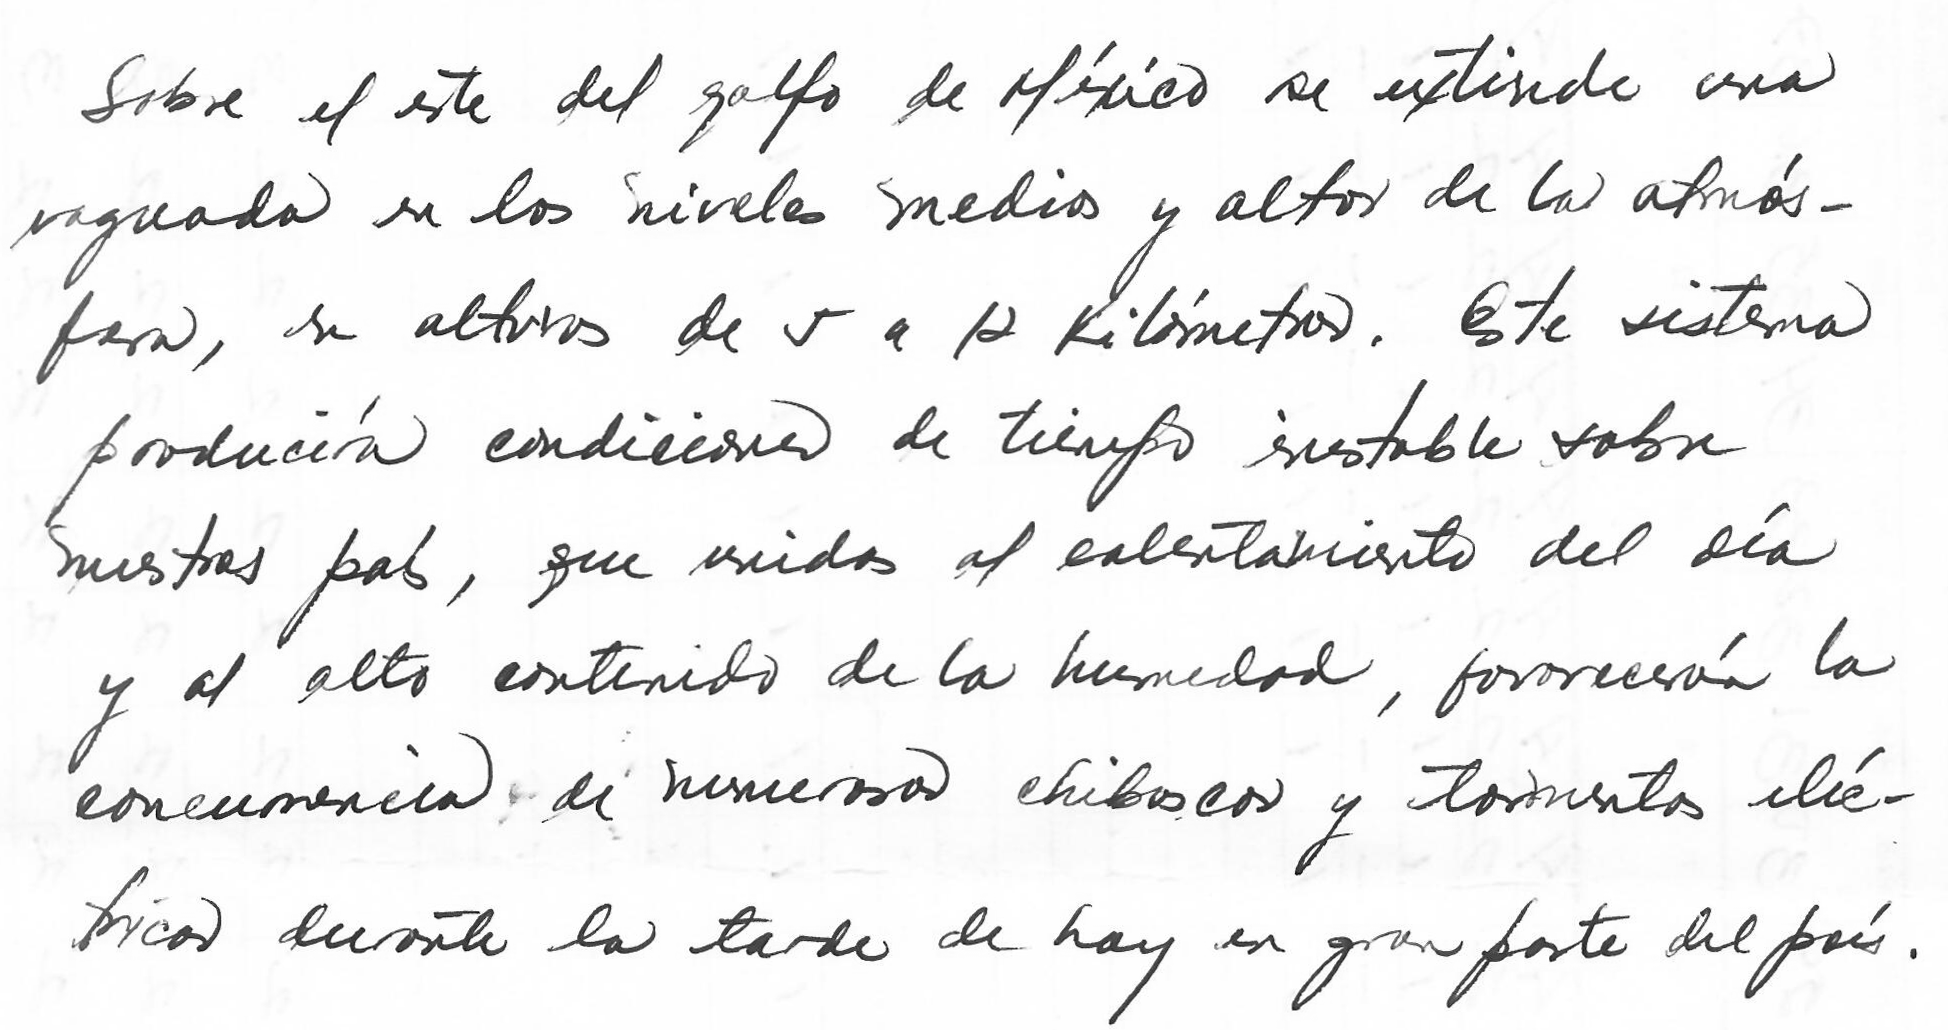 Sobre el este del golfo de México se extiende una
vaguada en los niveles medios y altos de la atmós-
fera, en alturas de 5 a 12 Kilómetros. Este sistema
producirá condiciones de tiempo inestable sobre
nuestras país, que unidas al calentamiento del día
y al alto contenido de la humedad, favorecerán la
concurrencia de numerosos chibascos y tormentas eléc-
tricas durante la tarde de hoy en gran parte del país.